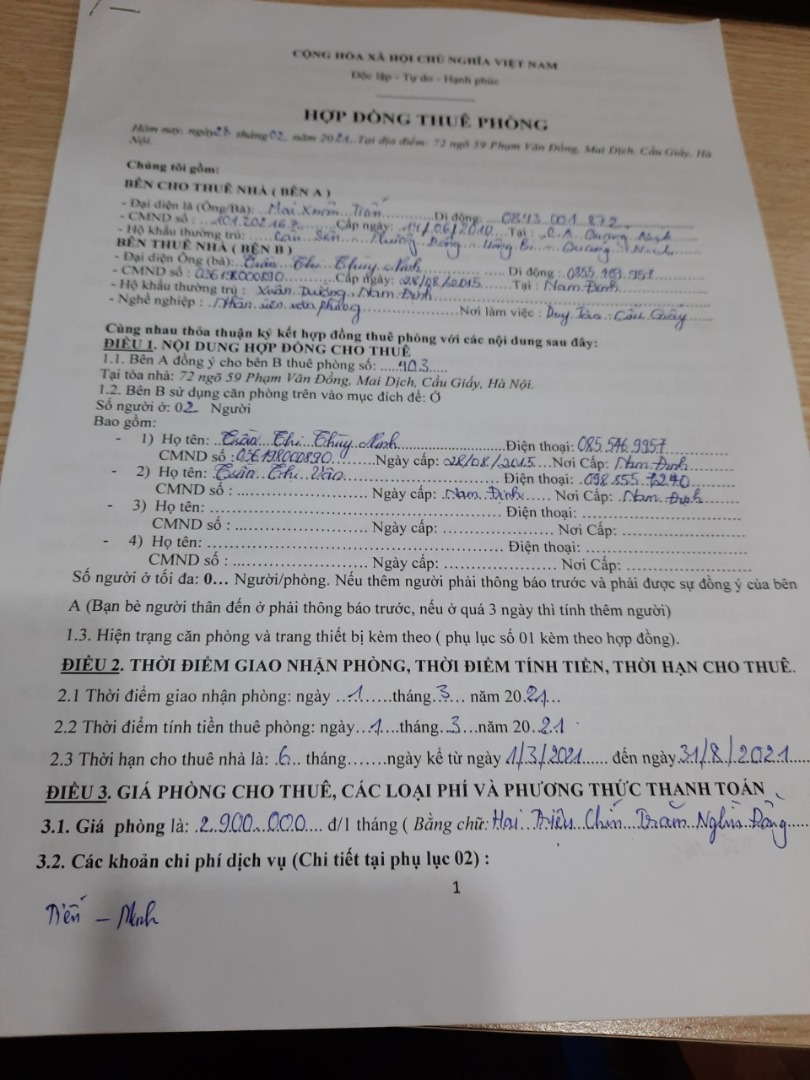 CỘNG HÒA XÃ HỘI CHỦ NGHĨA VIỆT NAM
Độc lập - Tự do - Hạnh phúc
HỢP ĐỒNG THUÊ PHÒNG
Hôm nay, ngày 28 tháng 02 năm 2021. Tại địa điểm: 72 ngõ 59 Phạm Văn Đồng, Mai Dịch, Cầu Giấy, Hà
Nội.
Chúng tôi gồm:
BÊN CHO THUÊ NHÀ ( BÊN A )
- Đại diện là (Ông/Bà): Mai Xuân Tiến Di động: 0843 001 872
- CMND số : Cấp ngày: 14/06/2010 Tại : C.A Quảng Ninh
- Hộ khẩu thường trú: Phương Đông - Uông Bí - Quảng Ninh
BÊN THUÊ NHÀ ( BÊN B )
- Đại diện Ông (bà): Trần Thị Thùy Ninh Di động :
- CMND số : 036198000890 Cấp ngày: 28/08/2015 Tại : Nam Định
- Hộ khẩu thường trú : Xuân Trường, Nam Định
- Nghề nghiệp : Nhân viên văn phòng Nơi làm việc : Duy Tân - Cầu Giấy
Cùng nhau thỏa thuận ký kết hợp đồng thuê phòng với các nội dung sau đây:
ĐIỀU 1. NỘI DUNG HỢP ĐỒNG CHO THUÊ
1.1. Bên A đồng ý cho bên B thuê phòng số: 403
Tại tòa nhà: 72 ngõ 59 Phạm Văn Đồng, Mai Dịch, Cầu Giấy, Hà Nội.
1.2. Bên B sử dụng căn phòng trên vào mục đích để: Ở
Số người ở: 02 Người
Bao gồm:
- 1) Họ tên: Trần Thị Thùy Ninh Điện thoại: 085.546.9957
CMND số : 036198000890 Ngày cấp: 28/08/2015 Nơi Cấp: Nam Định
- 2) Họ tên: Trần Thị Vân Điện thoại : 098.855.7240
CMND số : Ngày cấp: Nam Định Nơi Cấp: Nam Định
- 3) Họ tên: Điện thoại:
CMND số : Ngày cấp: Nơi Cấp:
- 4) Họ tên: Điện thoại:
CMND số : Ngày cấp: Nơi Cấp:
Số người ở tối đa: 0... Người/phòng. Nếu thêm người phải thông báo trước và phải được sự đồng ý của bên
A (Bạn bè người thân đến ở phải thông báo trước, nếu ở quá 3 ngày thì tính thêm người)
1.3. Hiện trạng căn phòng và trang thiết bị kèm theo ( phụ lục số 01 kèm theo hợp đồng).
ĐIỀU 2. THỜI ĐIỂM GIAO NHẬN PHÒNG, THỜI ĐIỂM TÍNH TIỀN, THỜI HẠN CHO THUÊ.
2.1 Thời điểm giao nhận phòng: ngày 1 tháng 3 năm 2021
2.2 Thời điểm tính tiền thuê phòng: ngày 1 tháng 3 năm 2021
2.3 Thời hạn cho thuê nhà là: 6 tháng.......ngày kể từ ngày 1/3/2021 đến ngày 31/8/2021
ĐIỀU 3. GIÁ PHÒNG CHO THUÊ, CÁC LOẠI PHÍ VÀ PHƯƠNG THỨC THANH TOÁN
3.1. Giá phòng là: 2.900.000 đ/1 tháng ( Bằng chữ: Hai Triệu Chín Trăm Nghìn Đồng
3.2. Các khoản chi phí dịch vụ (Chi tiết tại phụ lục 02) :
1
Tiến - Ninh